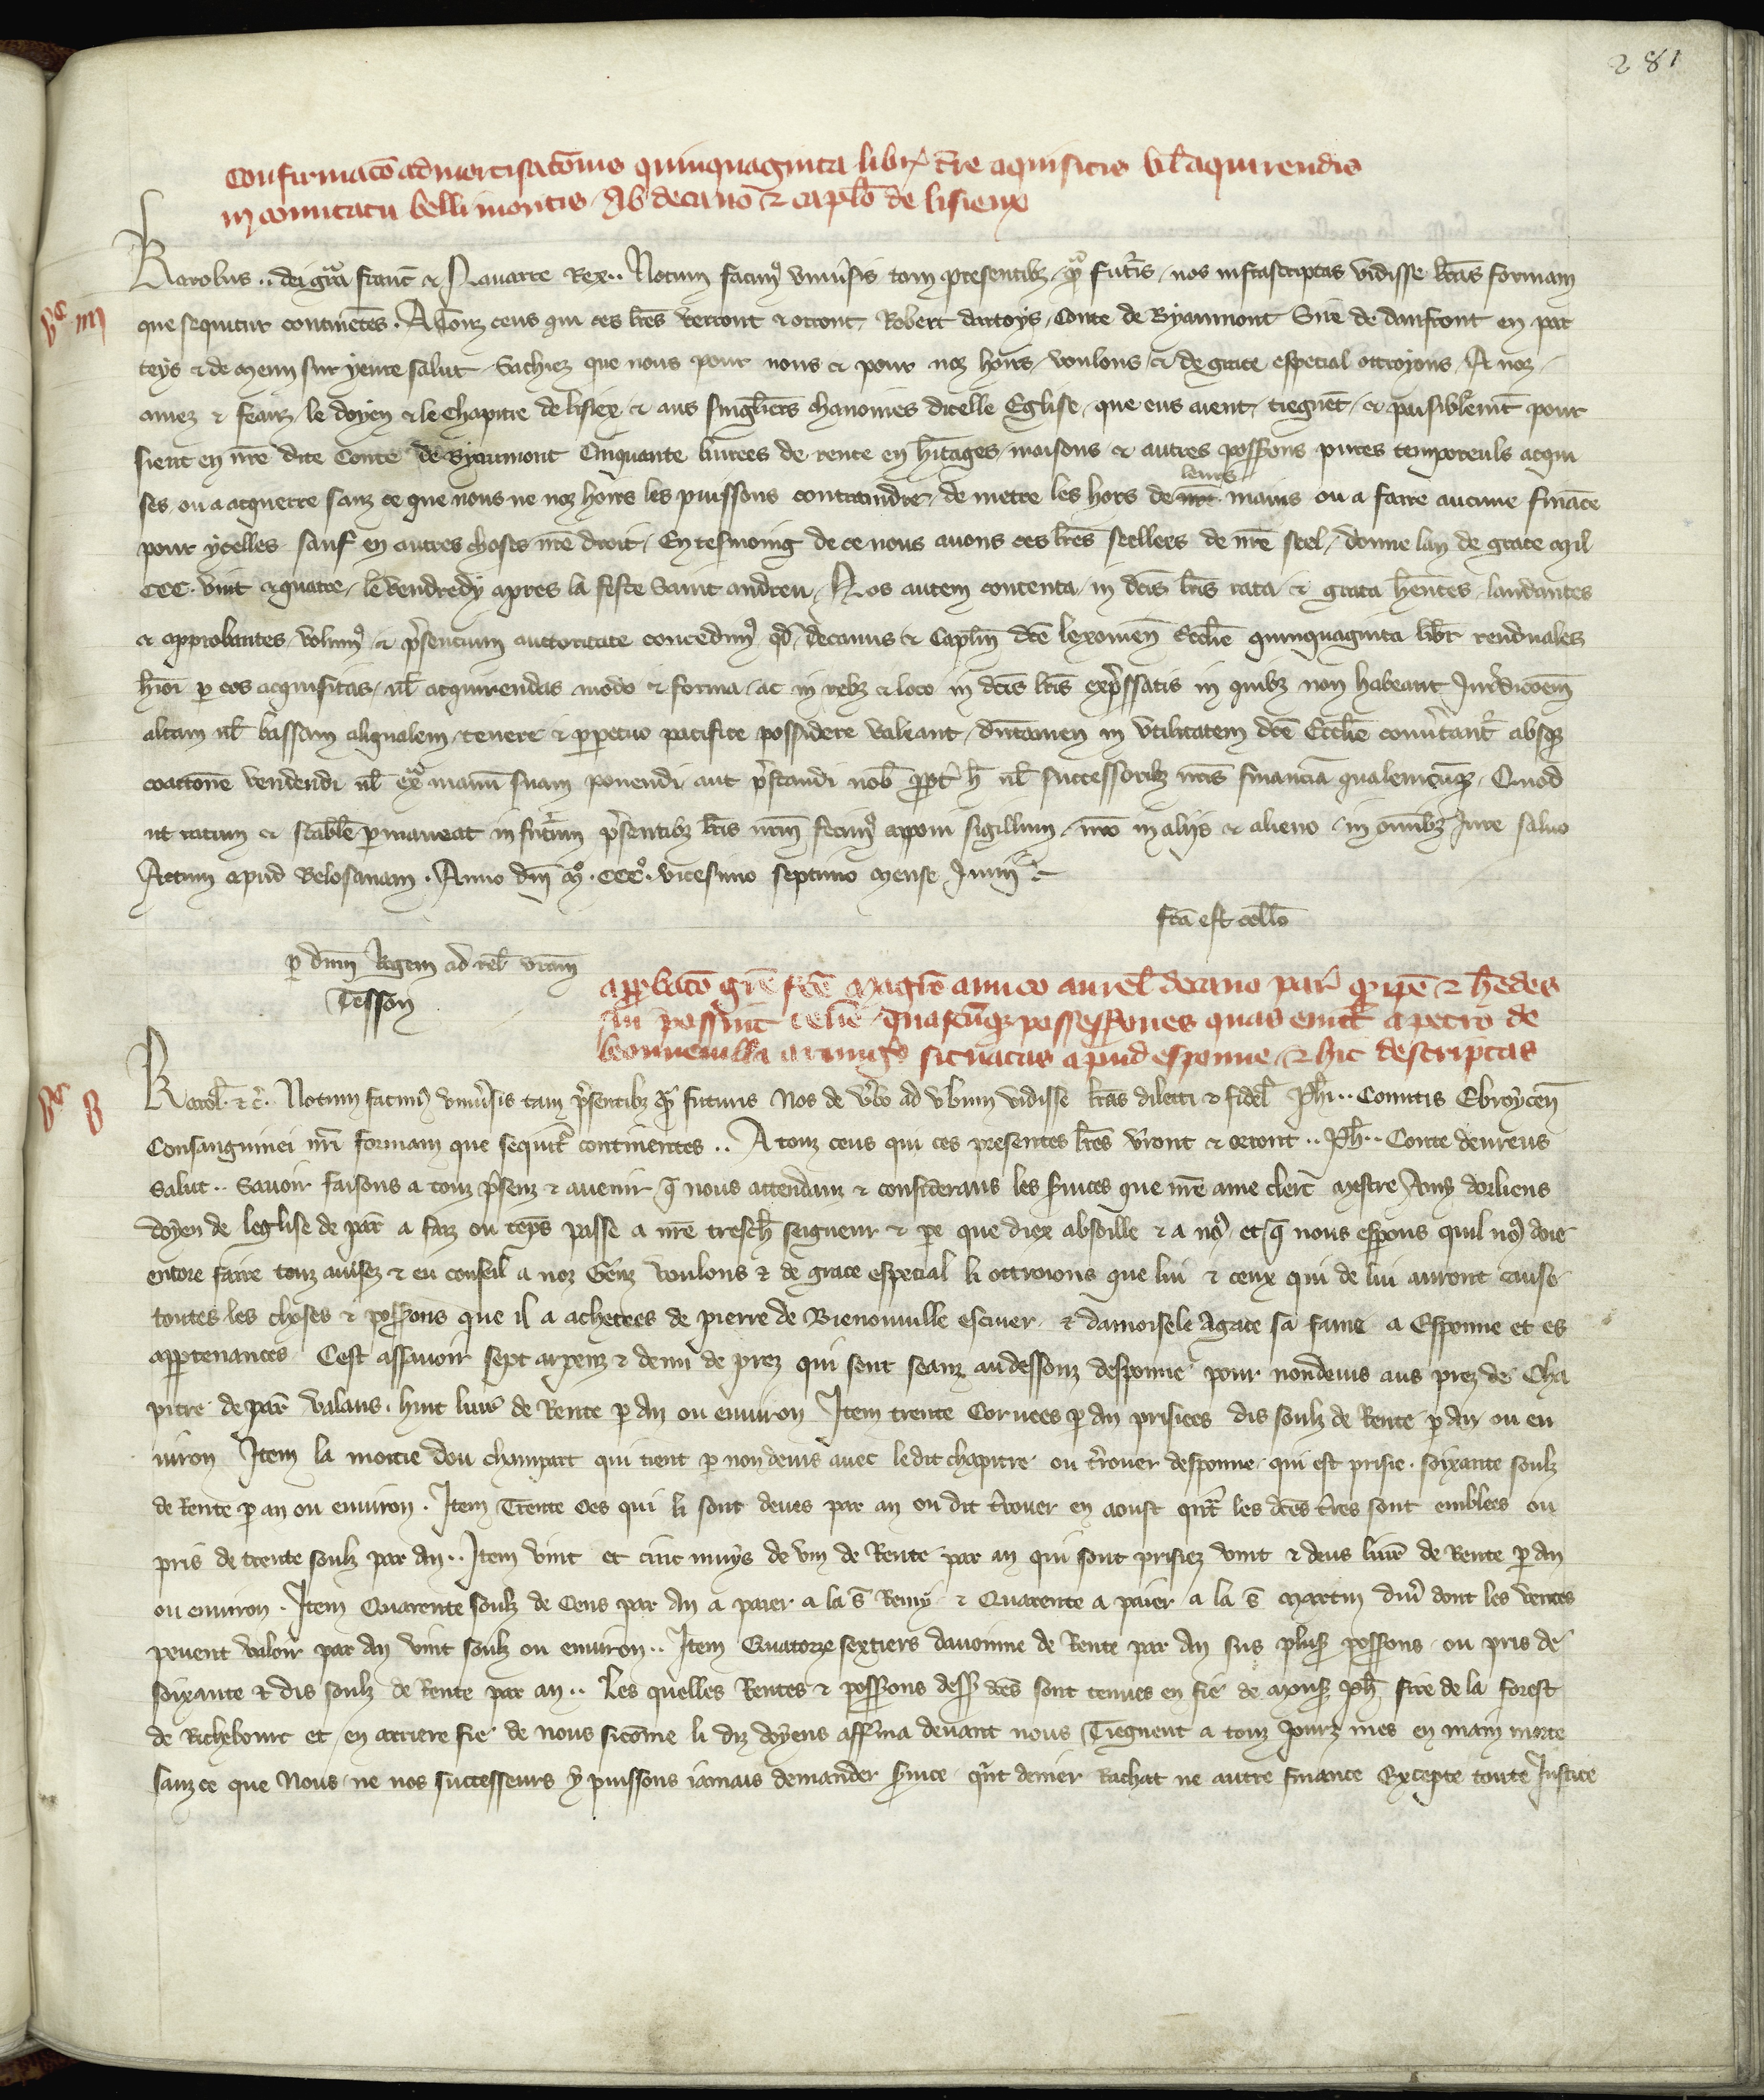 281
Confirmaco admortisatois quinquaginta libr tre aquisitis vl aquirendis
in comitatu belli montis Ab decano & caplo de lisieux
Karolus .. dei gra franc & Navarre Rex .. Notum facimus universis tam presentibz qua futuris nos infrascriptas vidisse lras formam
que sequitur continetes . A Touz ceus qui ces lres verront & orront Robert dartoys Conte de Byaumont Sire de danfront en par
teys & de meun sur yeure salut Sachiez que nous pour nous & pour noz hoirs voulons & de grace especial ottroyons A noz
amez & feauz le doyen & le Chapitre de lisiex & aus singliers chanoines dicelle Eglise que eus aient tiegnet & paisiblemt pour
sient en nre dite Conte de Byaumont Cinquante livrees de rente en hitages maisons & autres possons pures temporeuls acqui
ses ou a acquerre sanz ce que nous ne noz hoirs les puissons contraindre de metre les hors de leurs mains ou a faire aucune finace
pour ycelles sauf en autres choses nre droit En tesmoing de ce nous avons ces lres scellees de nre scel donne lan de grace mil
CCC . vint & quatre le vendredy apres la feste Saint andreu Nos autem contenta in dcis lris rata & grata hentes laudantes
& approbantes volumus & presentium auctoritate concedimus qd decanus & Caplm dce lexoviens Ecclie quinquaginta libr renduales
hmoi per eos acquisitas vl acquirendas modo & forma ac in rebz & loco in dcis lris expressatis in quibz non habeant Juridicoem
altam vl bassam aliqualem tenere & perpetuo pacifice possidere valeant dutamen in utilitatem dce Ecclie convertant absqz
coactione vendendi vl extra manu suam ponendi aut prestandi nob propt h vl successoribz nris financia qualemcuqz . Quod
ut ratum & stabile permaneat in futurum presentibz lris nrm fecimus apponi sigillum nro in aliis & alieno in omnibz Jure salvo
Actum apud Belosanam . Anno dni mo . CCCo . vicesimo septimo mense Junii
fca est collo
per dnm Regem ad rel vram
Tesson
approbaco gre fce magro amico aurel decano par quod ipe & hedes
sui possint tene quascuqz possessiones quas emit a petro de
bonnevilla armigo situatas apud esponne & hic descriptas
Karol & c . Notum facimus universis tam presentibz qua futuris Nos de verbo ad verbum vidisse lras dilecti & fidel Phi .. Comitis Ebroycen
Consanguinei nri formam que sequitr continentes .. A touz ceus qui ces presentes lres verront & orront .. Ph .. Conte devreus
Salut .. Savoir faisons a touz presenz & avenir que nous attendanz & considerans les services que nre ame clerc mestre Amy dorliens
doyen de leglise de par a faiz ou teps passe a nre tresch seigneur & pere que diex absoille & a nous et que nous esperons quil nous doie
encore faire touz avisez & en conseil a noz Genz voulons & de grace especial li ottroions que lui & ceux qui de lui auront cause
toutes les choses & possons que il a achetees de pierre de Bienonville escuier & damoisele Agace sa fame a Esponne et es
appartenances Cest assavoir sept arpenz & demi de prez qui sont seanz audessouz desponne pour nondevis aus prez de Cha
pitre de par valans . huit livres de Rente par An ou environ Item trente Corvees par An prisiees dis soulz de Rente par An ou en
viron Item la moitie dou champart qui tient par nondevis avec ledit chapitre ou trouer desponne qui est prisie . soixante soulz
de Rente par an ou environ . Item Trente Oes qui li sont deues par an ou dit trouer en aoust quant les dces tres sont emblees ou
pris de trente soulz par An .. Item vint et cinc muys de vin de Rente par an qui sont prisiez vint & deus livres de Rente par An
ou environ . Item Quarente soulz de Cens par An a paier a la s Remy & Quarente a paier a la s martin diver dont les ventes
pevent valoir par An vint soulz ou environ .. Item Quatorze sextiers davoinne de Rente par An sus plus possons ou pris de
soixante & dis soulz de Rente par an .. Les quelles Rentes & possons dess dces sont tenues en fie de mons Ph sire de la forest
de Richebourc et en arriere fie de nous sicome li diz doyens afferma devant nous Tiegnent a touz Jourz mes en main morte
sanz ce que Nous ne nos successeurs y puissons jamais demander service quint denier Rachat ne autre finance Excepte toute Justice